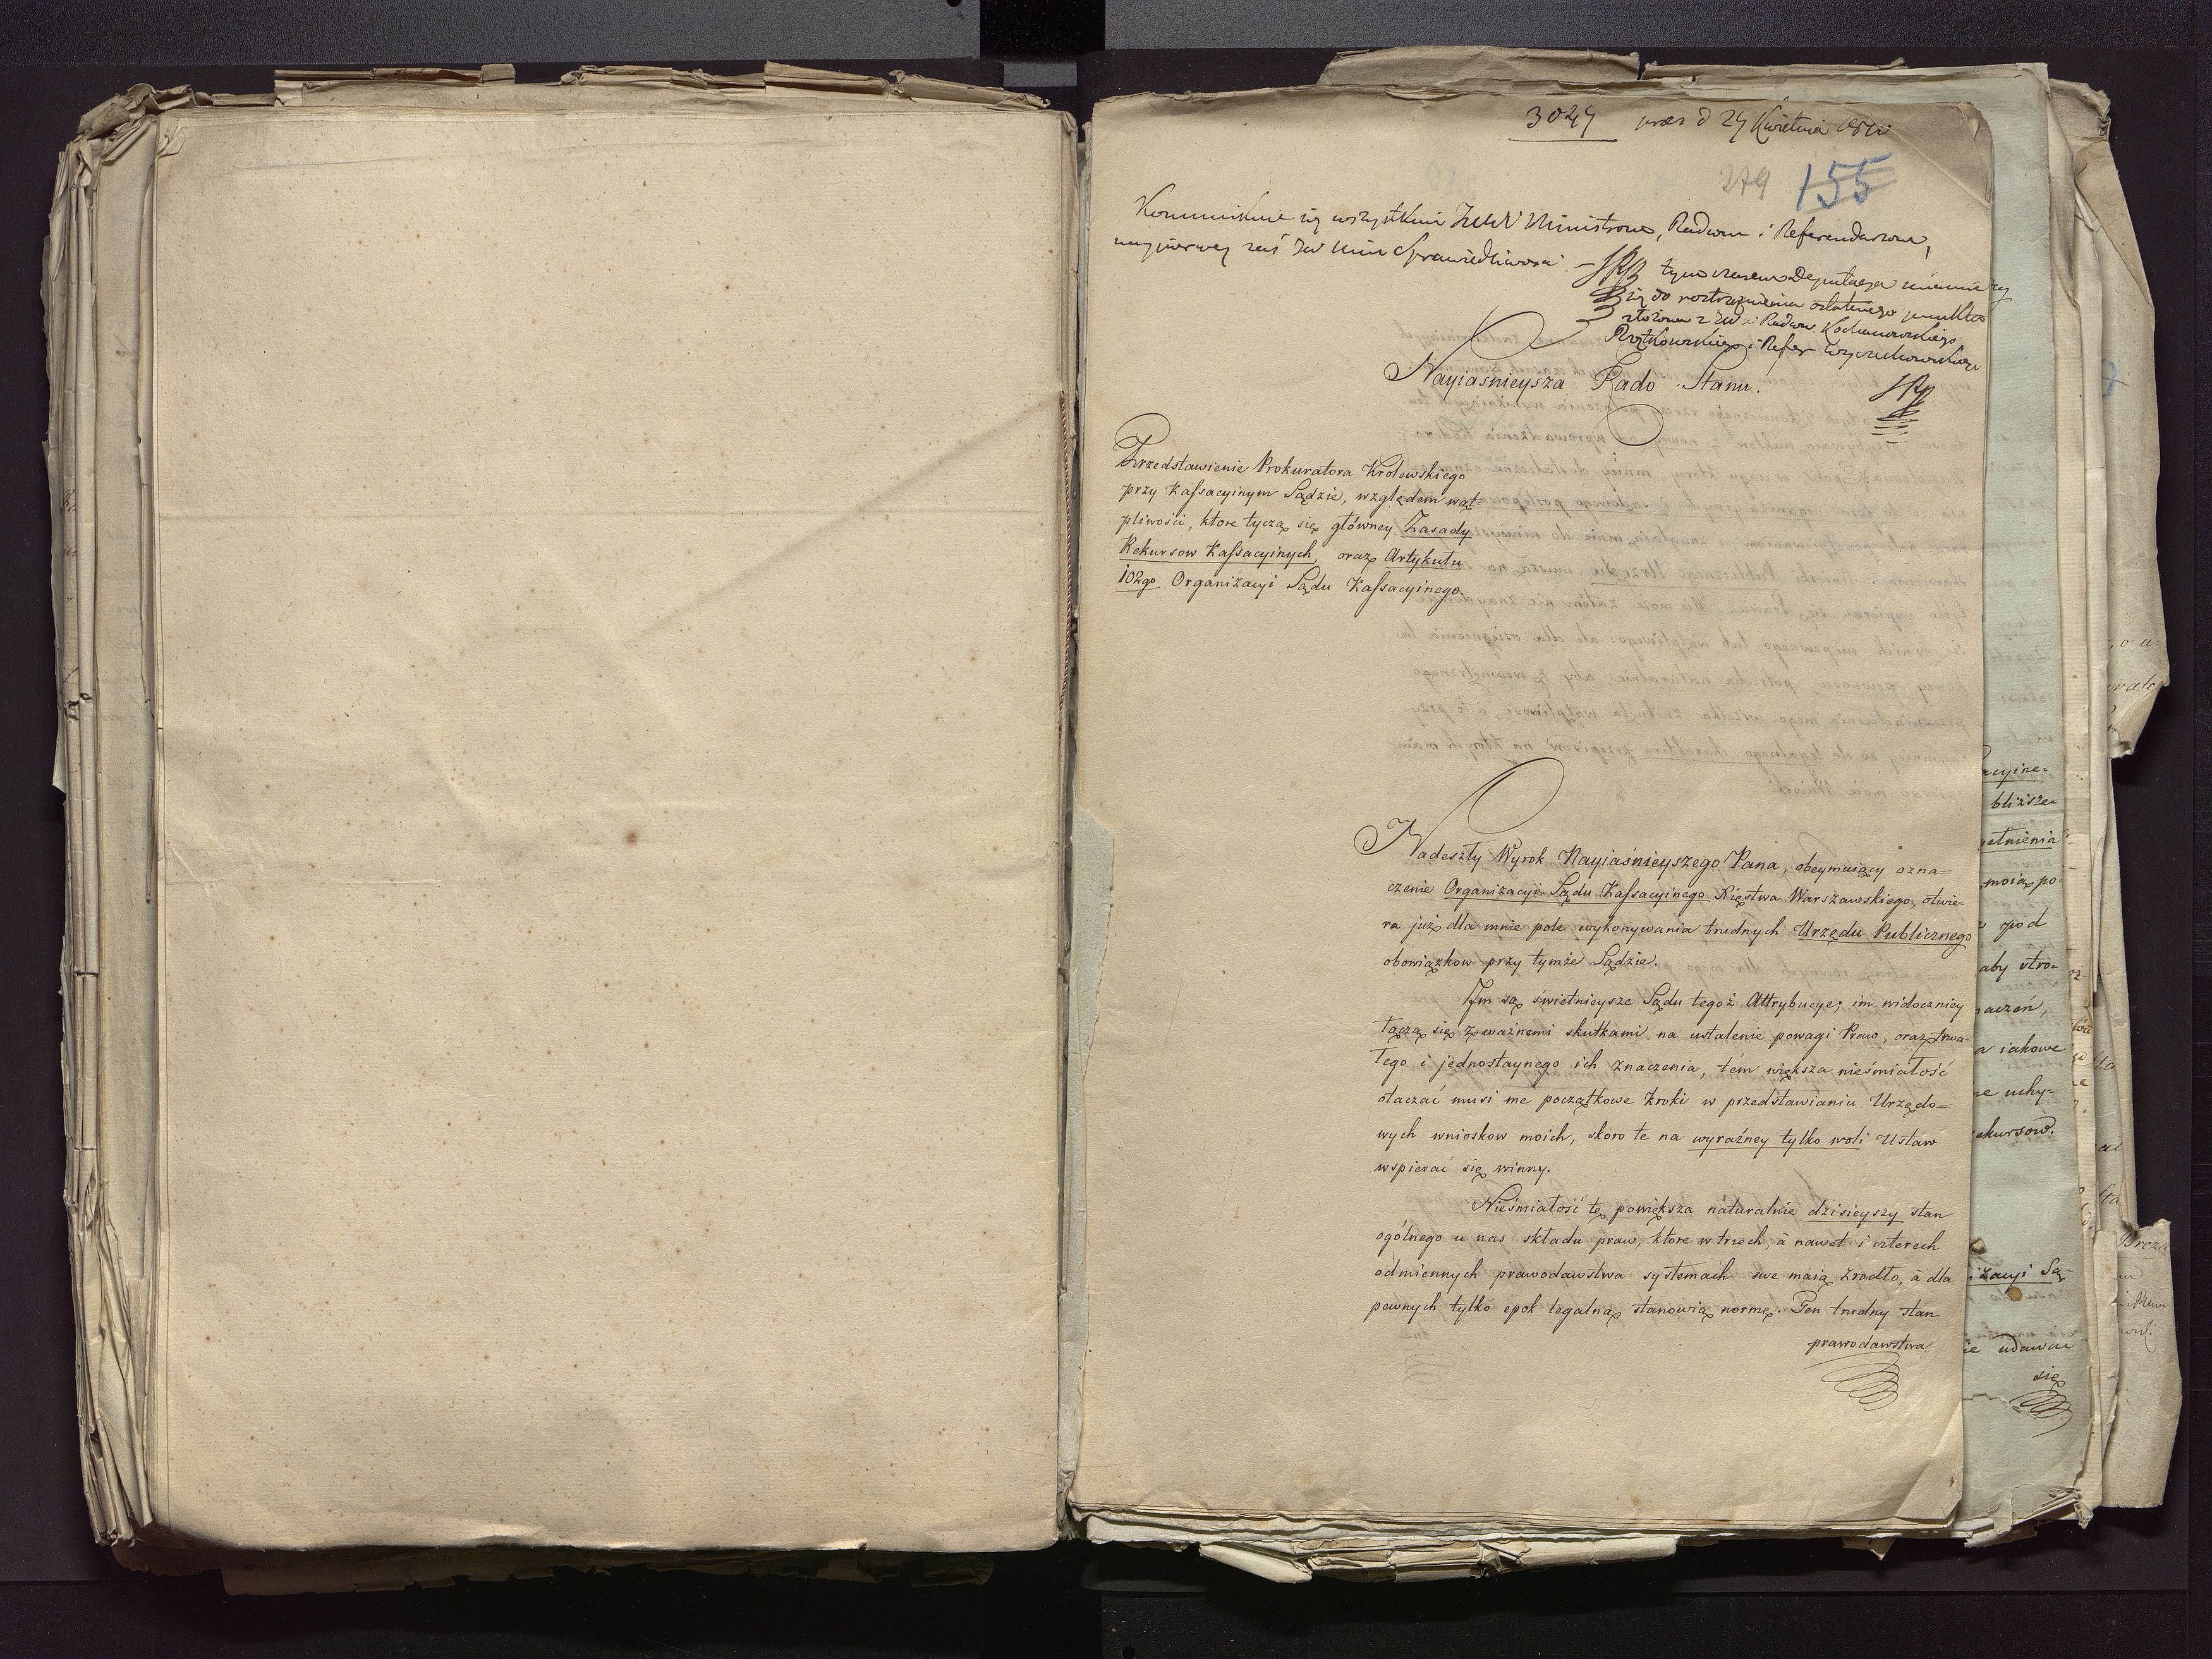 3024 prez d 24 Kwietnia
279 155
Kommunikuie się wszystkim Ministrom, Radcom i Referendarzom,
naypierwey zaś JW Min Sprawiedliwości
tymczasem Deputacya
się do roztrząśnienia ostatniego punktu
złożona z JW Radców Kochanowskiego
i Refer Wyczechowskiego
Nayiaśnieysza Rado Stanu!
Przedstawienie Prokuratora Krolewskiego
przy Kassacyinym Sądzie, względem wąt-
pliwości, ktore tyczą się głowney Zasady
Rekursow Kassacyinych, oraz Artykułu
102go Organizacyi Sądu Kassacyinego.
Nadeszły Wyrok Nayiaśnieyszego Pana, obeymuiący ozna=
czenie Organizacyi Sądu Kassacyinego Xięstwa Warszawskiego, otwie-
ra już dla mnie pole wykonywania trudnych Urzędu Publicznego
obowiązkow przy tymże Sądzie.
Im są świetnieysze Sądu tegoż Attrybucye; im widoczniey
łączą się z ważnemi skutkami na ustalenie powagi Praw, oraz trwa-
łego i jednostaynego ich znaczenia, tém większa nieśmiałość
otaczać musi me początkowe kroki w przedstawianiu Urzędo=
wych wnioskow moich, skoro te na wyraźney tylko woli Ustaw
wspierać się winny.
Nieśmiałość tę powiększa naturalnie dzisieyszy stan
ogólnego u nas składu praw, ktore w trzech, à nawet i czterech
odmiennych prawodawstwa systemach swe maią źrodło, à dla
pewnych tylko epok legalną stanowią normę. Ten trudny stan
prawodawstwa
acyine-
bliższe
ełnienia
moią po-
pod
aby stro-
aczeń,
a iakowe
ne uchy-
ekursow.
izacyi Są-
ie udawać
się